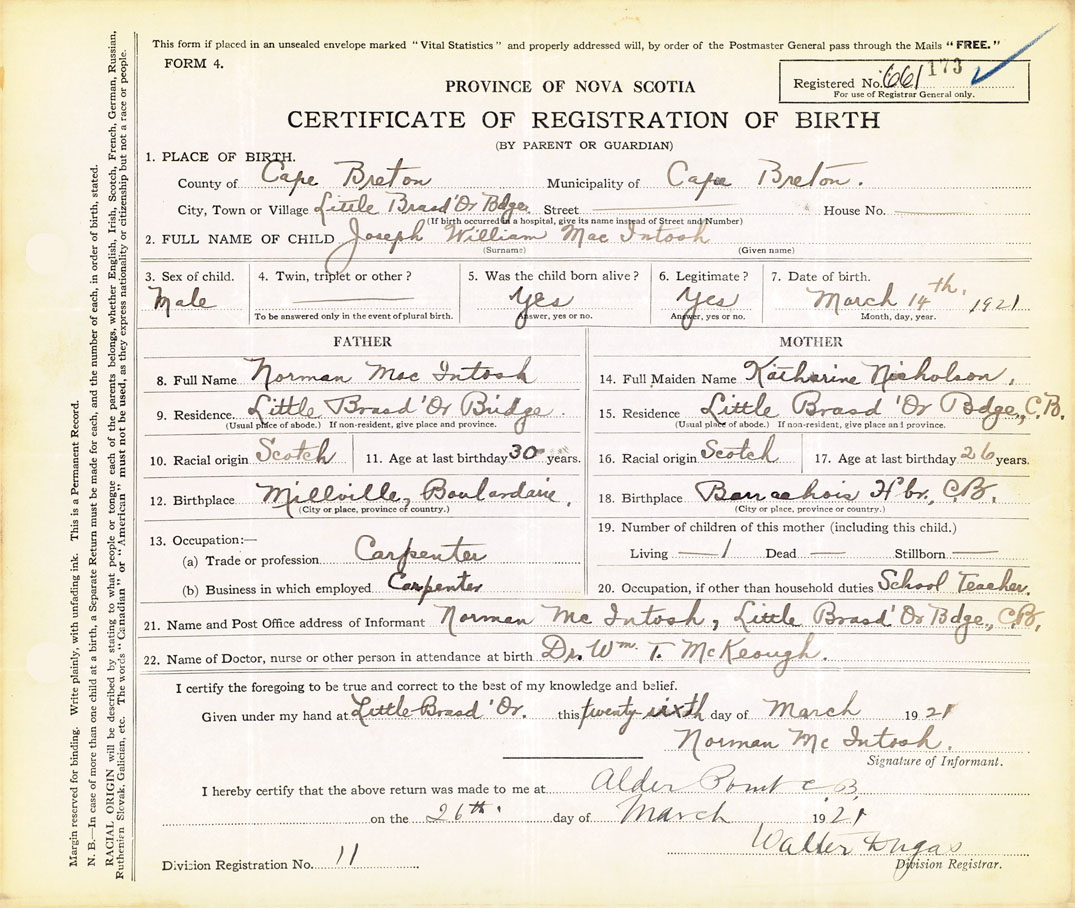 This form if placed in an unsealed envelope marked "Vital Statistics" and properly addressed will, by order of the Postmaster General pass through the Mails "FREE."
FORM 4.
Registered No. 661 173
For use of Registrar General only.
PROVINCE OF NOVA SCOTIA
CERTIFICATE OF REGISTRATION OF BIRTH
(BY PARENT OR GUARDIAN)
1. PLACE OF BIRTH.
County of Cape Breton Municipality of Cape Breton.
City, Town or Village Little Brasd'Or Bdge. Street House No.
(If birth occurred in a hospital, give its name instead of Street and Number)
2. FULL NAME OF CHILD Joseph William Mac Intosh
(Surname) (Given name)
3. Sex of child. 4. Twin, triplet or other? 5. Was the child born alive? 6. Legitimate? 7. Date of birth.
Male Yes Yes March 14th. 1921
To be answered only in the event of plural birth. Answer, yes or no. Answer, yes or no. Month, day, year.
FATHER
8. Full Name Norman Mac Intosh
9. Residence. Little Brasd'Or Bridge.
(Usual place of abode.) If non-resident, give place and province.
10. Racial origin Scotch 11. Age at last birthday 30 years.
12. Birthplace Millville, Boulardarie,
(City or place, province or country.)
13. Occupation:—
(a) Trade or profession Carpenter
(b) Business in which employed Carpenter
MOTHER
14. Full Maiden Name Katharine Nicholson,
15. Residence Little Brasd'Or Bdge., C.B.
(Usual place of abode.) If non-resident, give place and province.
16. Racial origin Scotch 17. Age at last birthday 26 years.
18. Birthplace Barrachois Hbr., C.B.
(City or place, province or country.)
19. Number of children of this mother (including this child.)
Living — 1 Dead — Stillborn —
20. Occupation, if other than household duties School Teacher.
21. Name and Post Office address of Informant Norman Mc Intosh, Little Brasd'Or Bdge., C.B.
22. Name of Doctor, nurse or other person in attendance at birth Dr. Wm. T. McKeough.
I certify the foregoing to be true and correct to the best of my knowledge and belief.
Given under my hand at Little Brasd'Or. this twenty-sixth day of March 1921
Norman Mc Intosh.
Signature of Informant.
I hereby certify that the above return was made to me at Alder Point C B.
on the 26th. day of March 1921
Walter Dugas
Division Registration No. 11 Division Registrar.
Margin reserved for binding. Write plainly, with unfading ink. This is a Permanent Record.
N. B.—In case of more than one child at a birth, a Separate Return must be made for each, and the number of each, in order of birth, stated.
RACIAL ORIGIN will be described by stating to what people or tongue each of the parents belongs, whether English, Irish, Scotch, French, German, Russian,
Ruthenian Slovak, Galician, etc. The words "Canadian" or "American" must not be used, as they express nationality or citizenship but not a race or people.